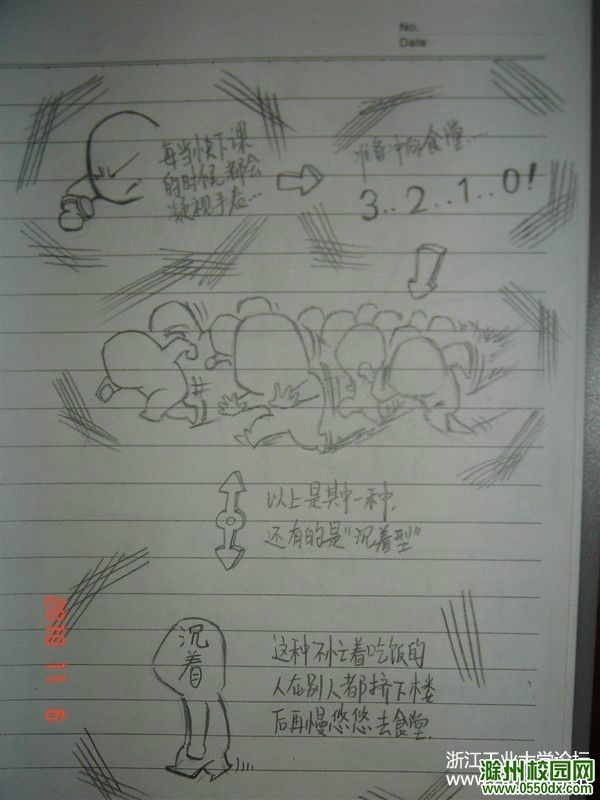 No.
Date
每当快下课
的时候,都会
凝视手表…
准备冲向食堂…
3..2..1..0!
以上是其中一种,
还有的是"沉着型"
沉着
这种不忙着吃饭的
人在别人都挤下楼
后再慢悠悠去食堂.
浙江工业大学论坛
www.
滁州校园网
www.0550dx.com